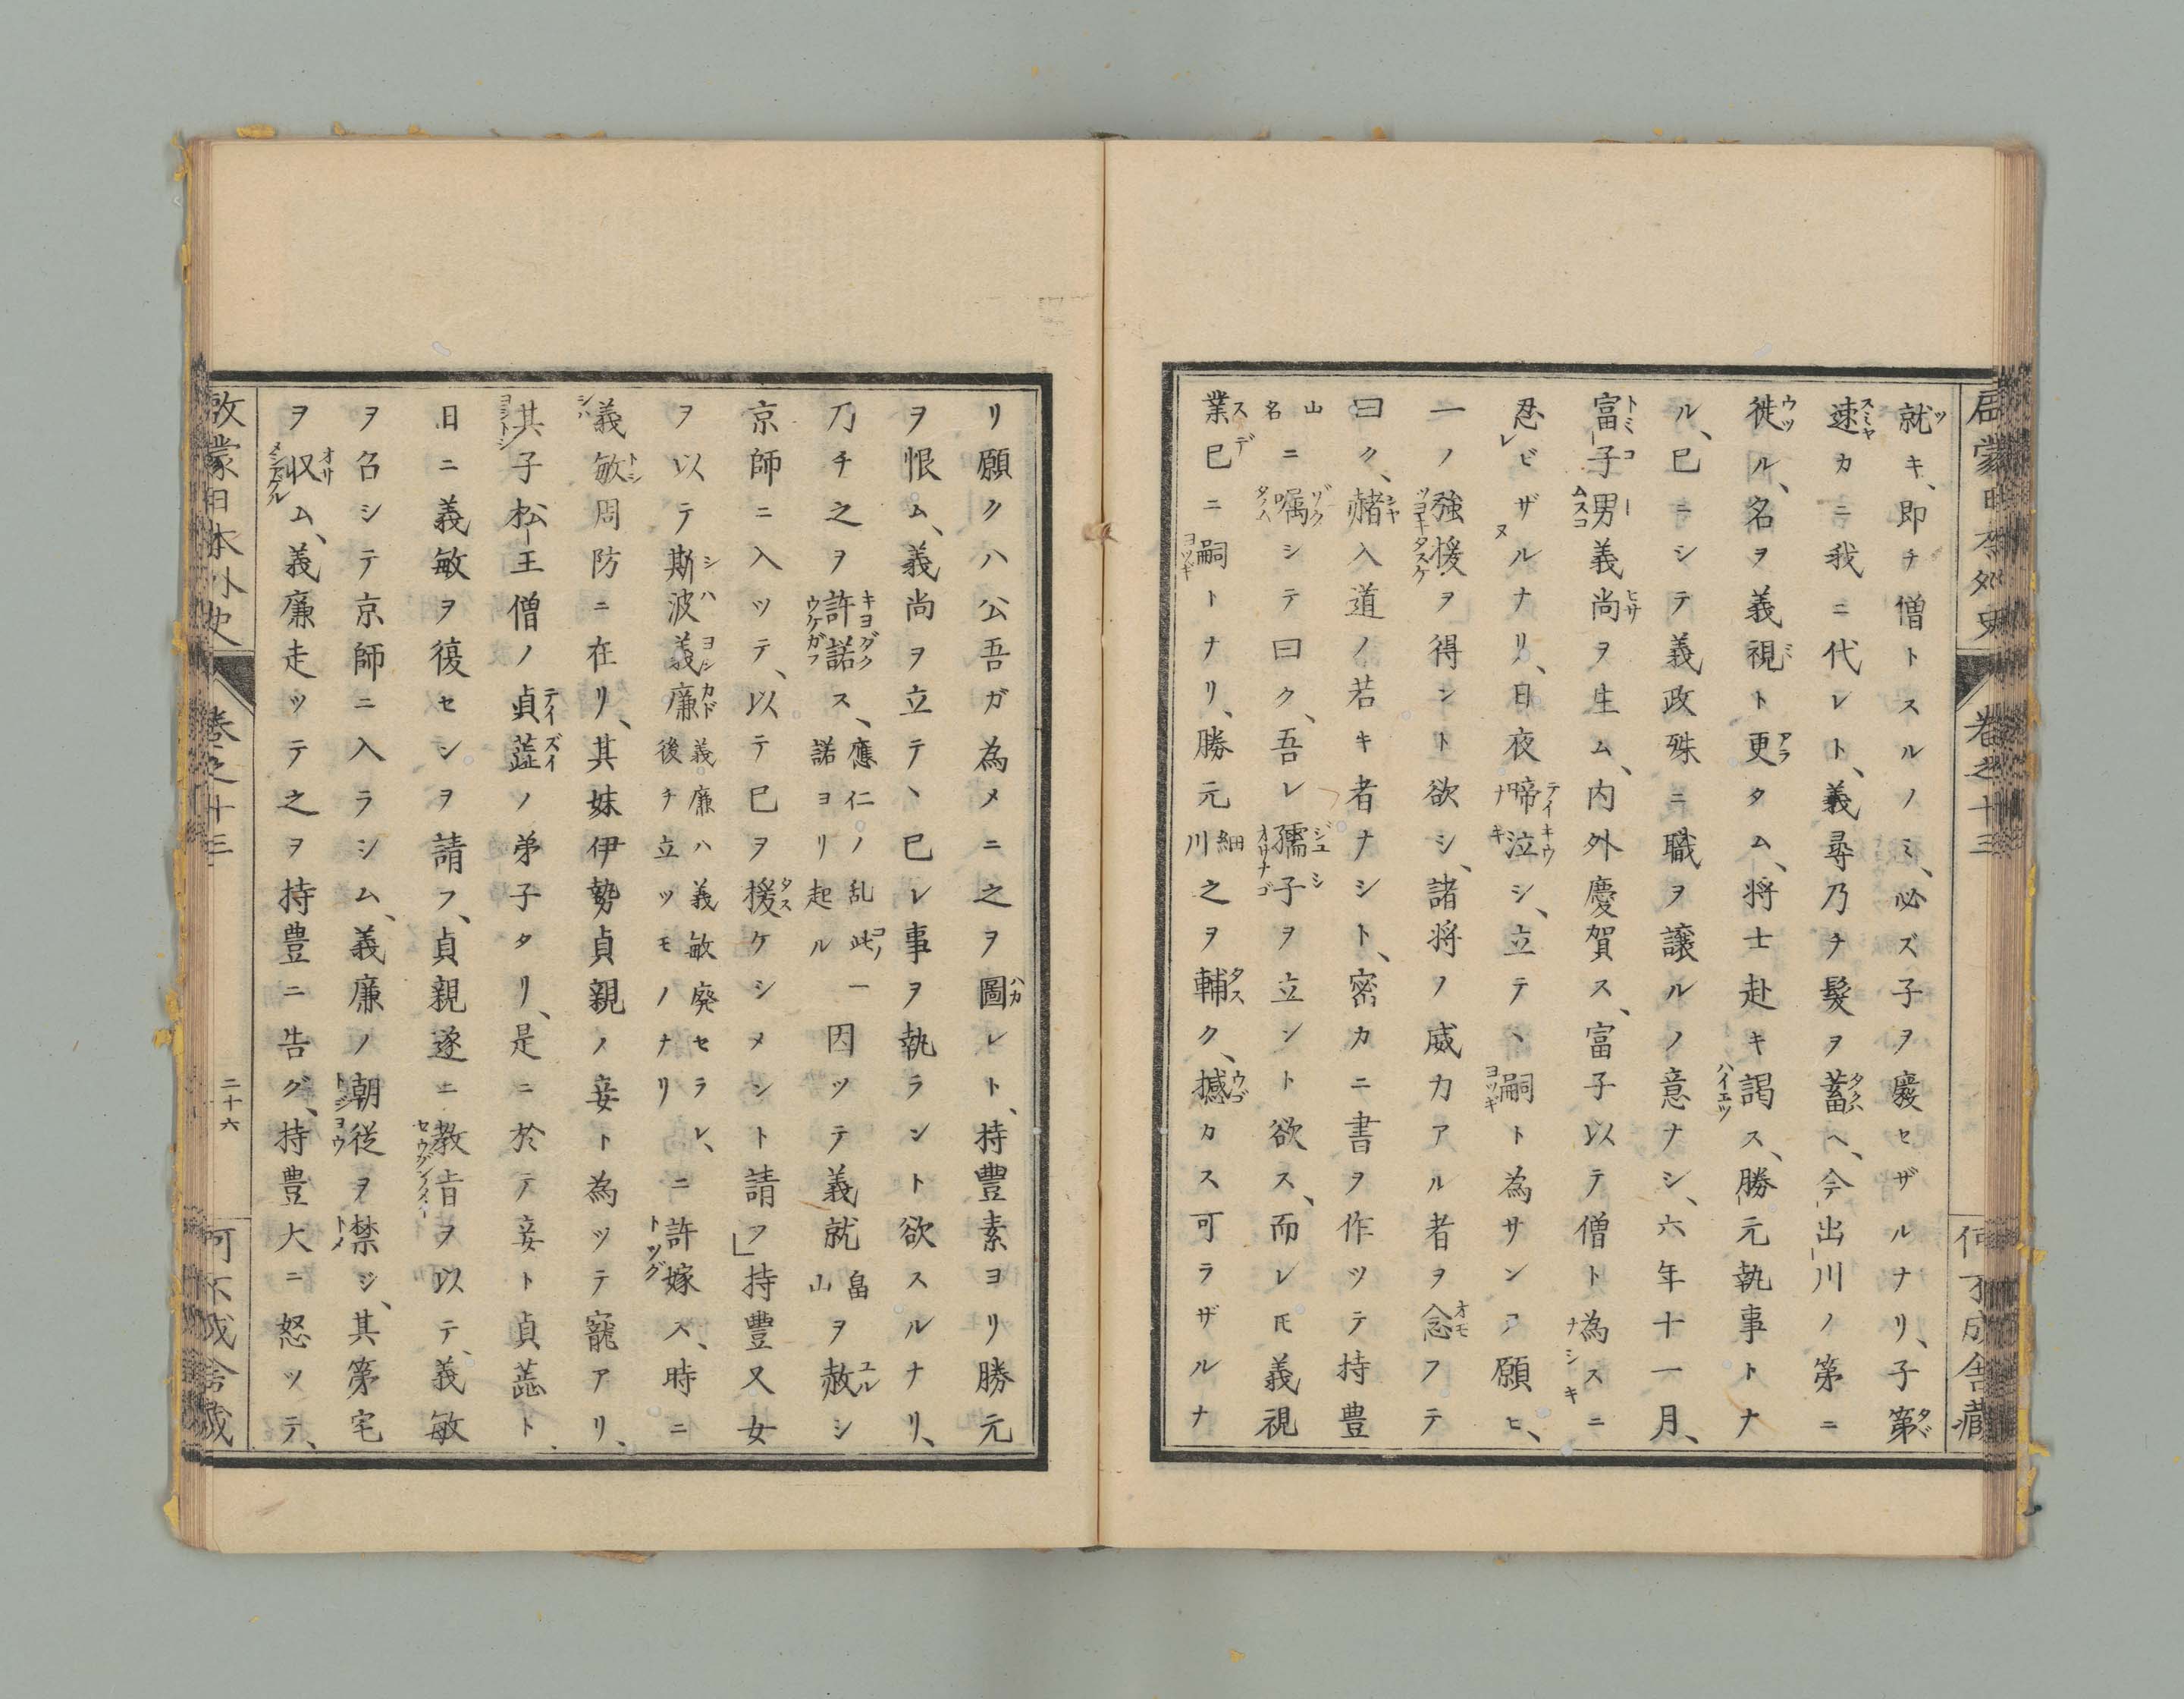 啓蒙日本外史 巻之十三 何不成舎蔵
就キ、即チ僧トスルノミ、必ズ子ヲ廢セザルナリ、子第
速カニ我ニ代レト、義尋乃チ髮ヲ蓄ヘ、今出川ノ第ニ
徙ル、名ヲ義視ト更タム、将士赴キ謁ス、勝元執事トナ
ル、已ニシテ義政殊ニ職ヲ譲ルノ意ナシ、六年十一月、
富子男義尚ヲ生ム、内外慶賀ス、富子以テ僧ト為スニ
忍ビザルナリ、日夜啼泣シ、立テヽ嗣ト為サンヿヲ願ヒ、
一ノ強援ヲ得ント欲シ、諸将ノ威力アル者ヲ念フテ
曰ク、赭入道ノ若キ者ナシト、密カニ書ヲ作ツテ持豊
山名ニ嘱シテ曰ク、吾レ孺子ヲ立ント欲ス、而レ𪜈義視
業已ニ嗣トナリ、勝元細川之ヲ輔ク、撼カス可ラザルナ
リ願クハ公吾ガ為メニ之ヲ圖レト、持豐素ヨリ勝元
ヲ恨ム、義尚ヲ立テヽ已レ事ヲ執ラント欲スルナリ、
乃チ之ヲ許諾ス、應仁ノ乱此一諾ヨリ起ル因ツテ義就畠山ヲ赦シ
京師ニ入ツテ、以テ已ヲ援ケシメント請フ」持豐又女
ヲ以テ斯波義廉義廉ハ義敏廃セラレ、後チ立ツモノナリニ許嫁ス、時ニ
義敏周防ニ在リ、其妹伊勢貞親ノ妾ト為ツテ寵アリ、
其子松王僧ノ貞蕋ノ弟子タリ、是ニ於テ妾ト貞蕋ト、
日ニ義敏ヲ復セシヲ請フ、貞親遂ニ教旨ヲ以テ、義敏
ヲ召シテ京師ニ入ラシム、義廉ノ朝従ヲ禁ジ、其第宅
ヲ収ム、義廉走ツテ之ヲ持豊ニ告グ、持豊大ニ怒ツテ、
啓蒙日本外史 巻之十三 二十六 何不成舎蔵